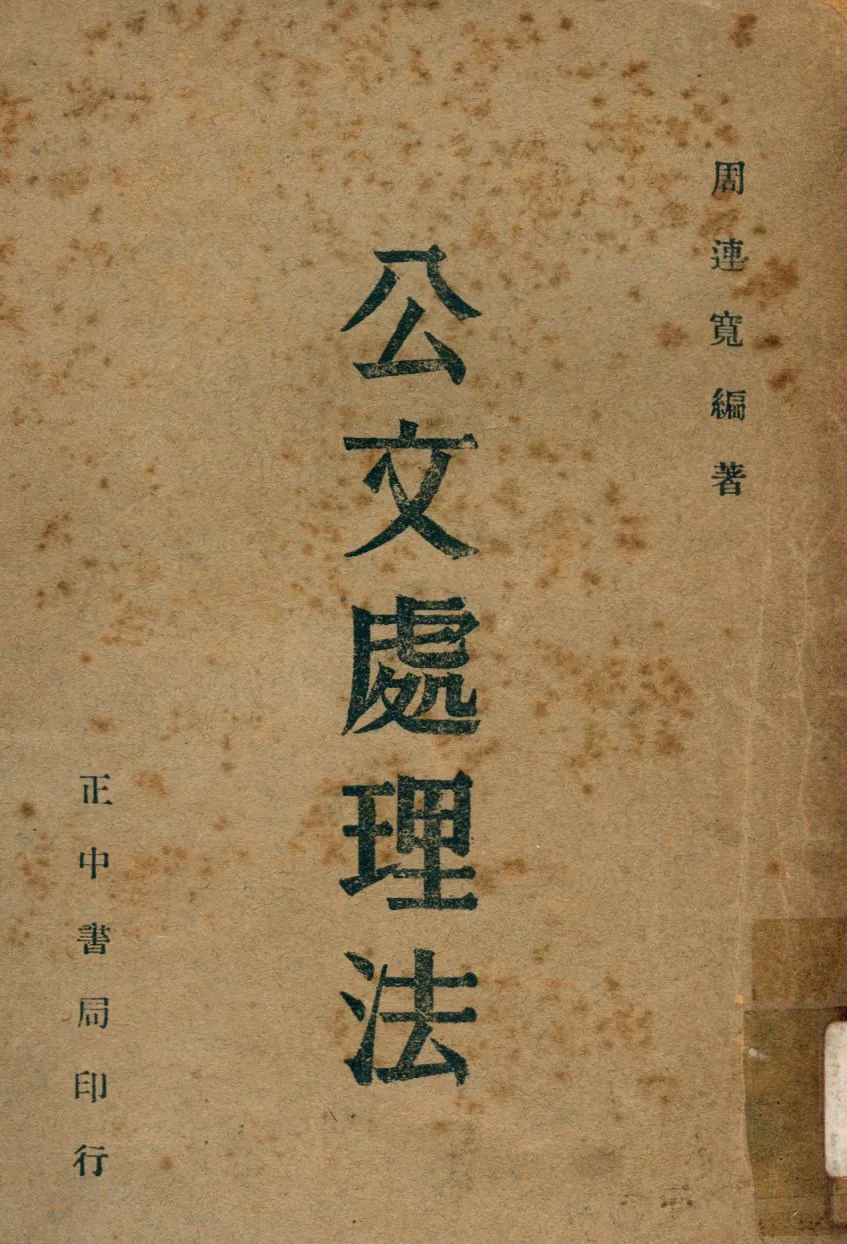 周連寬編著
公文處理法
正中書局印行